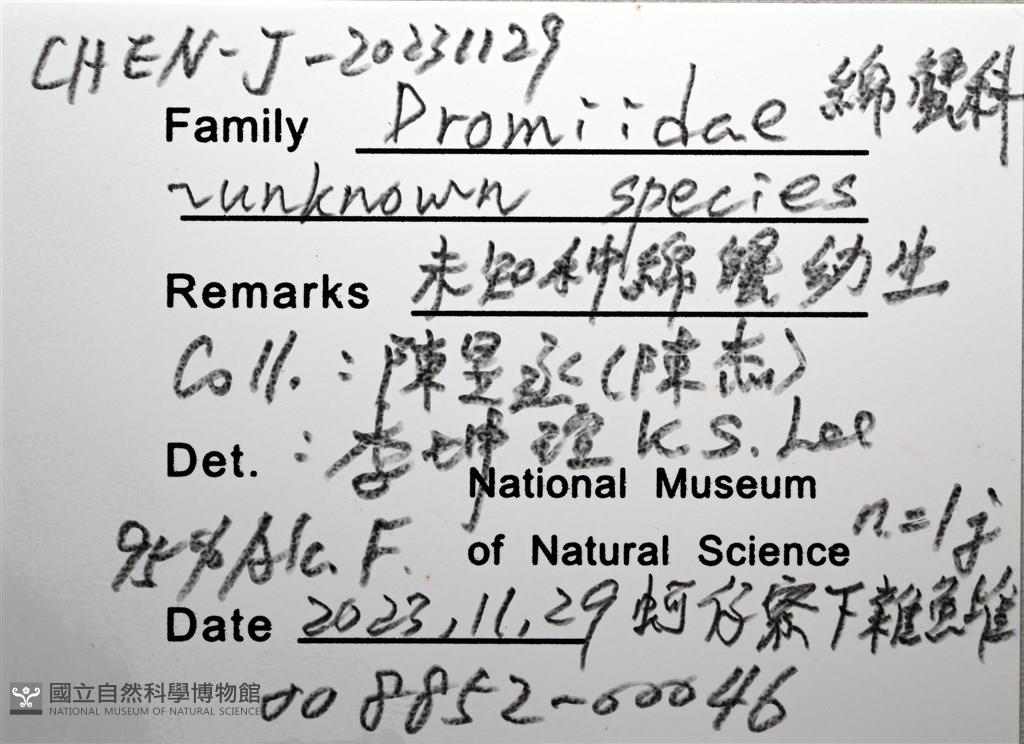 CHEN-J-20231129
Family Dromiidae 綿蟹科
~unknown species
Remarks 未知种綿蟹幼生
Coll.:陳昱丞(陳杰)
Det.:李坤瑄 K.S. Lee
National Museum
95% Alc. F. of Natural Science n=1j
Date 2023,11,29 蚵仔寮下雜魚堆
008852-00046
國立自然科學博物館
NATIONAL MUSEUM OF NATURAL SCIENCE